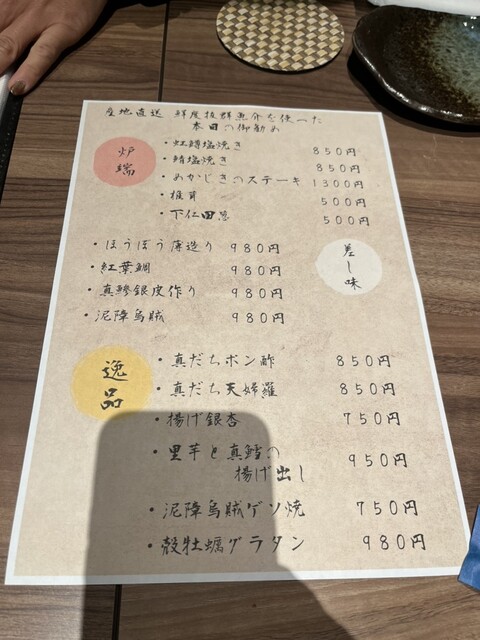 産地直送 鮮度抜群魚介を使った
本日の御勧め
炉端
・虹鱒塩焼き 850円
・鯖塩焼き 850円
・めかじきのステーキ 1300円
・椎茸 500円
・下仁田葱 500円
差し味
・ほうぼう薄造り 980円
・紅葉鯛 980円
・真鯵銀皮作り 980円
・泥障烏賊 980円
逸品
・真だちポン酢 850円
・真だち天婦羅 850円
・揚げ銀杏 750円
・里芋と真鱈の
揚げ出し 950円
・泥障烏賊ゲソ焼 750円
・殻牡蠣グラタン 980円